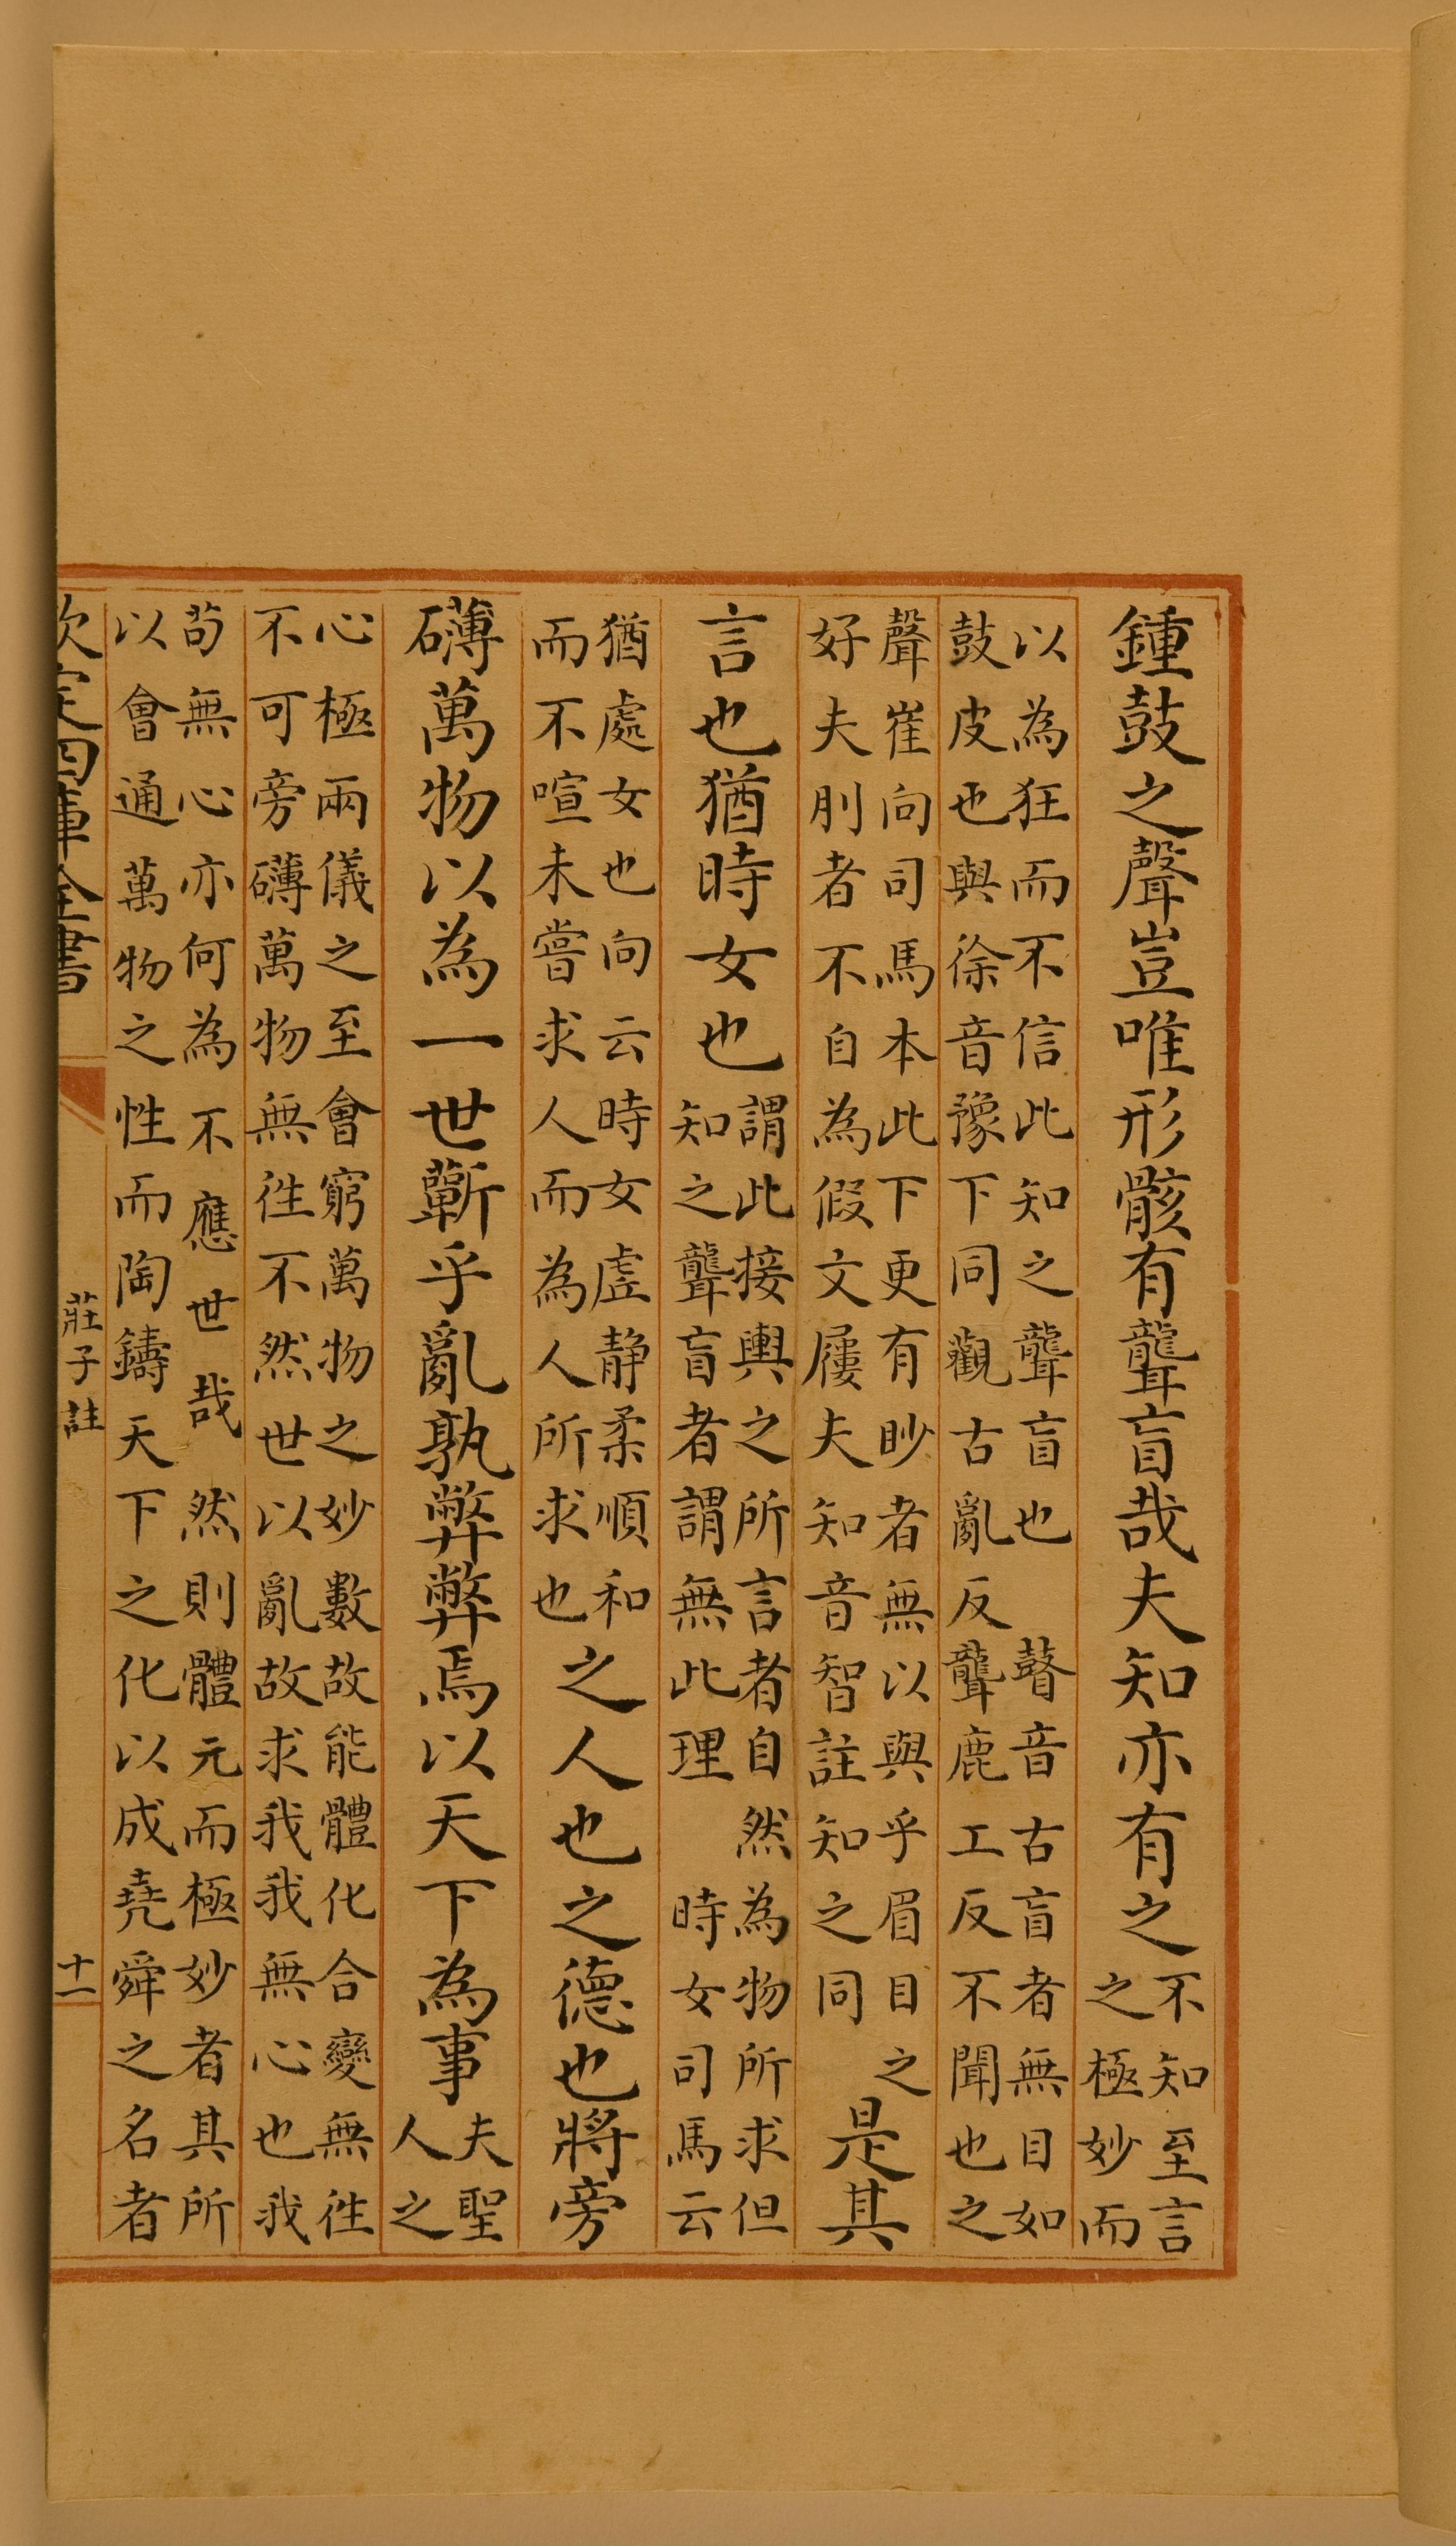 鍾鼓之聲豈唯形骸有聾盲哉夫知亦有之不知至言
之極妙而
以為狂而不信此知之聾盲也 瞽音古盲者無目如
鼓皮也與徐音豫下同觀古亂反聾鹿工反不聞也之
聲崔向司馬本此下更有眇者無以與乎眉目之
好夫刖者不自為假文屨夫知音智註知之同
是其
言也猶時女也謂此接輿之所言者自然為物所求但
知之聾盲者謂無此理 時女司馬云
猶處女也向云時女虛静柔順和
而不喧未嘗求人而為人所求也
之人也之德也將旁
礴萬物以為一世蘄乎亂孰弊弊焉以天下為事夫聖
人之
心極兩儀之至會窮萬物之妙數故能體化合變無徃
不可旁礴萬物無徃不然世以亂故求我我無心也我
苟無心亦何為不應世哉然則體元而極妙者其所
以會通萬物之性而陶鑄天下之化以成堯舜之名者
欽定四庫全書
莊子註
十一